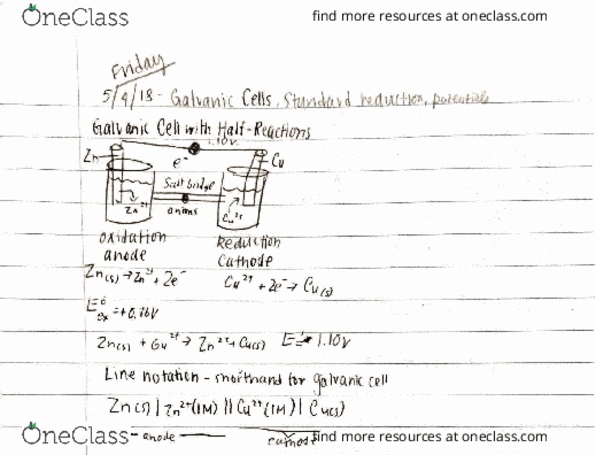 OneClass find more resources at oneclass.com
Friday
5/4/18 - Galvanic Cells, Standard reduction, potentials
Galvanic Cell with Half-Reactions
1.10V
Zn e⁻ Cu
Salt bridge
Zn²⁺ anions Cu²⁺
oxidation Reduction
anode Cathode
Zn(s) → Zn²⁺ + 2e⁻ Cu²⁺ + 2e⁻ → Cu(s)
E°ox = +0.76V
Zn(s) + Cu²⁺ → Zn²⁺ + Cu(s) E° = 1.10V
Line notation - shorthand for galvanic cell
Zn(s) | Zn²⁺(1M) || Cu²⁺(1M) | Cu(s)
anode cathode
OneClass find more resources at oneclass.com